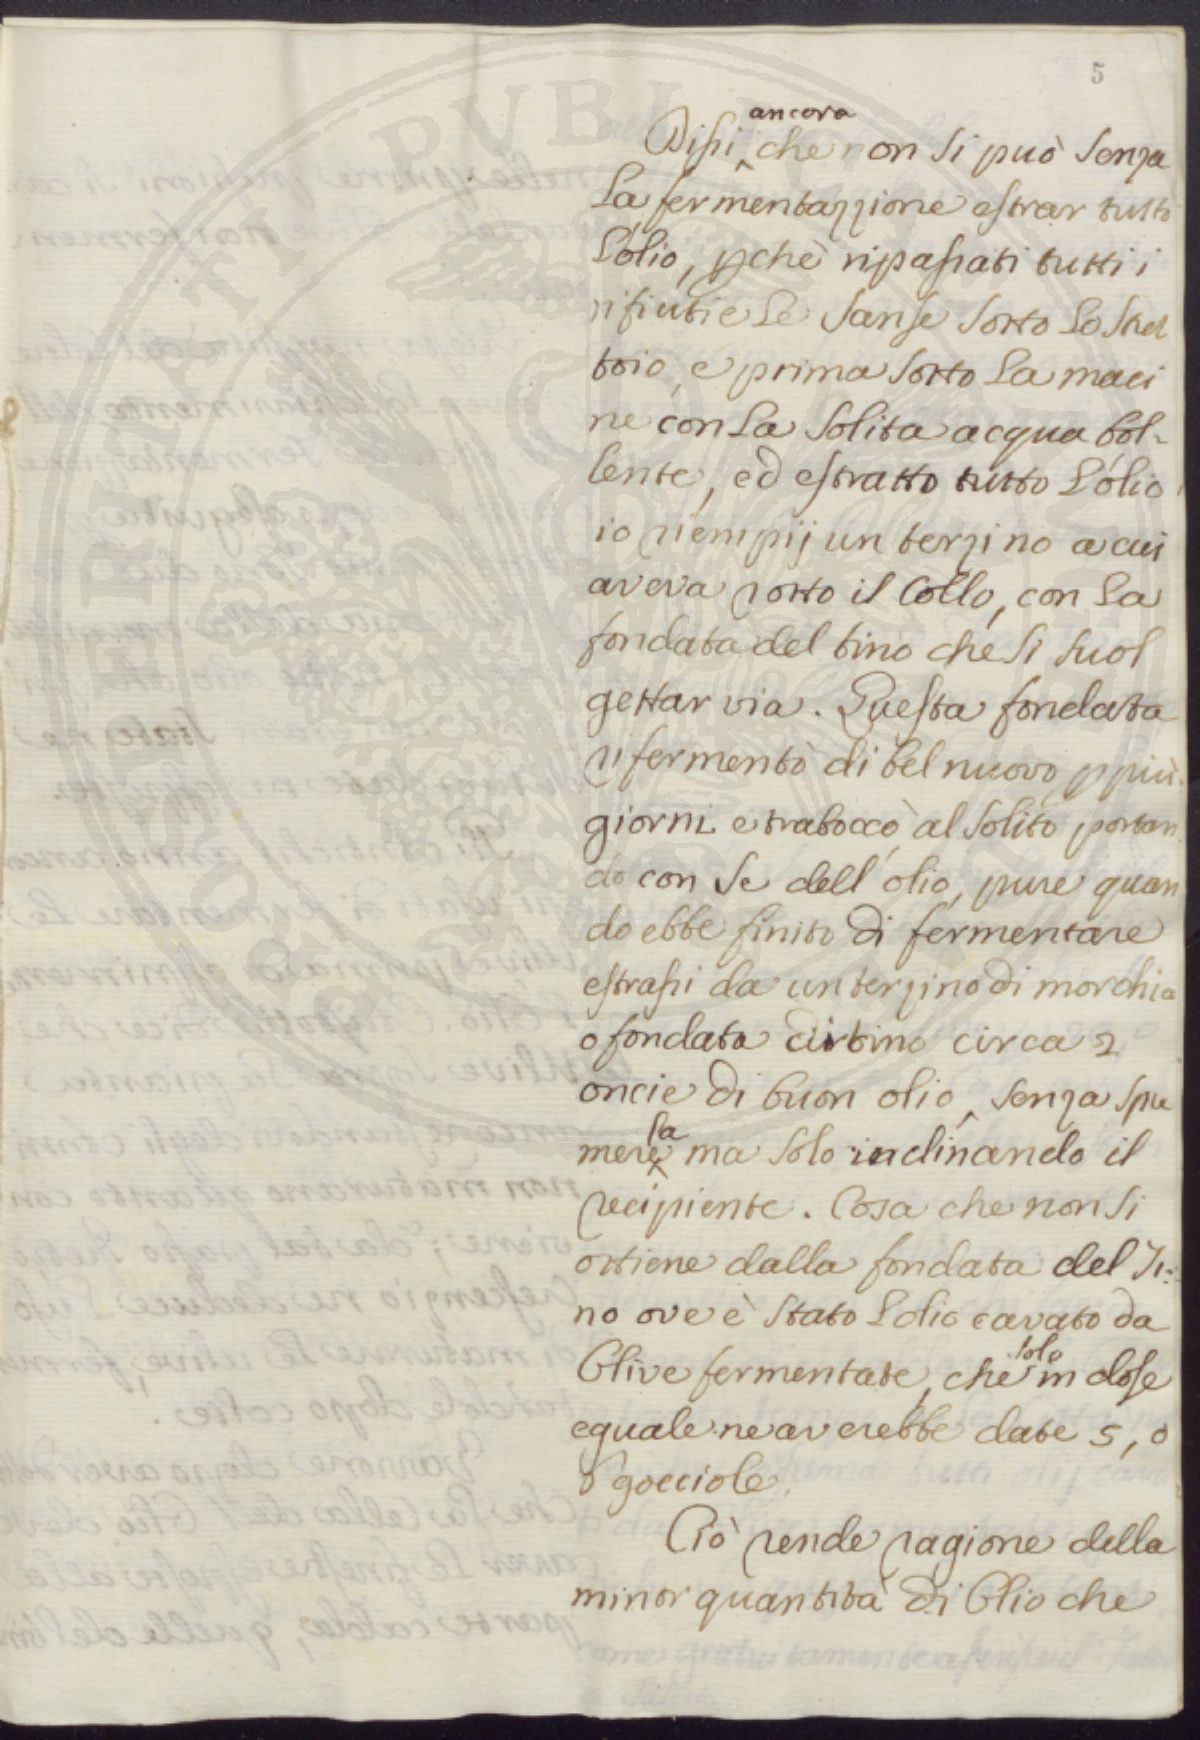 5
ancora
Dissi che non si può senza
la fermentazzione estrar tutto
l'olio, pchè ripassati tutti i
rifiuti e le sanse sotto lo stret
toio, e prima sotto la maci
ne con la solita acqua bol-
lente, ed estratto tutto l'olio
io riempij un terzino a cui
aveva rotto il collo, con la
fondata del tino che si suol
gettar via. Questa fondata
rifermentò di bel nuovo p più
giorni e traboccò al solito portan
do con se dell'olio, pure quan
do ebbe finito di fermentare
estrassi da un terzino di morchia
o fondata di tino circa 2
oncie di buon olio, senza spre
mere la ma solo inclinando il
recipiente. Cosa che non si
ottiene dalla fondata del Ti-
no ove è stato l'olio cavato da
Olive fermentate, che solo in dose
eguale ne averebbe date 5, o
6 gocciole.
Ciò rende ragione della
minor quantità di Olio che